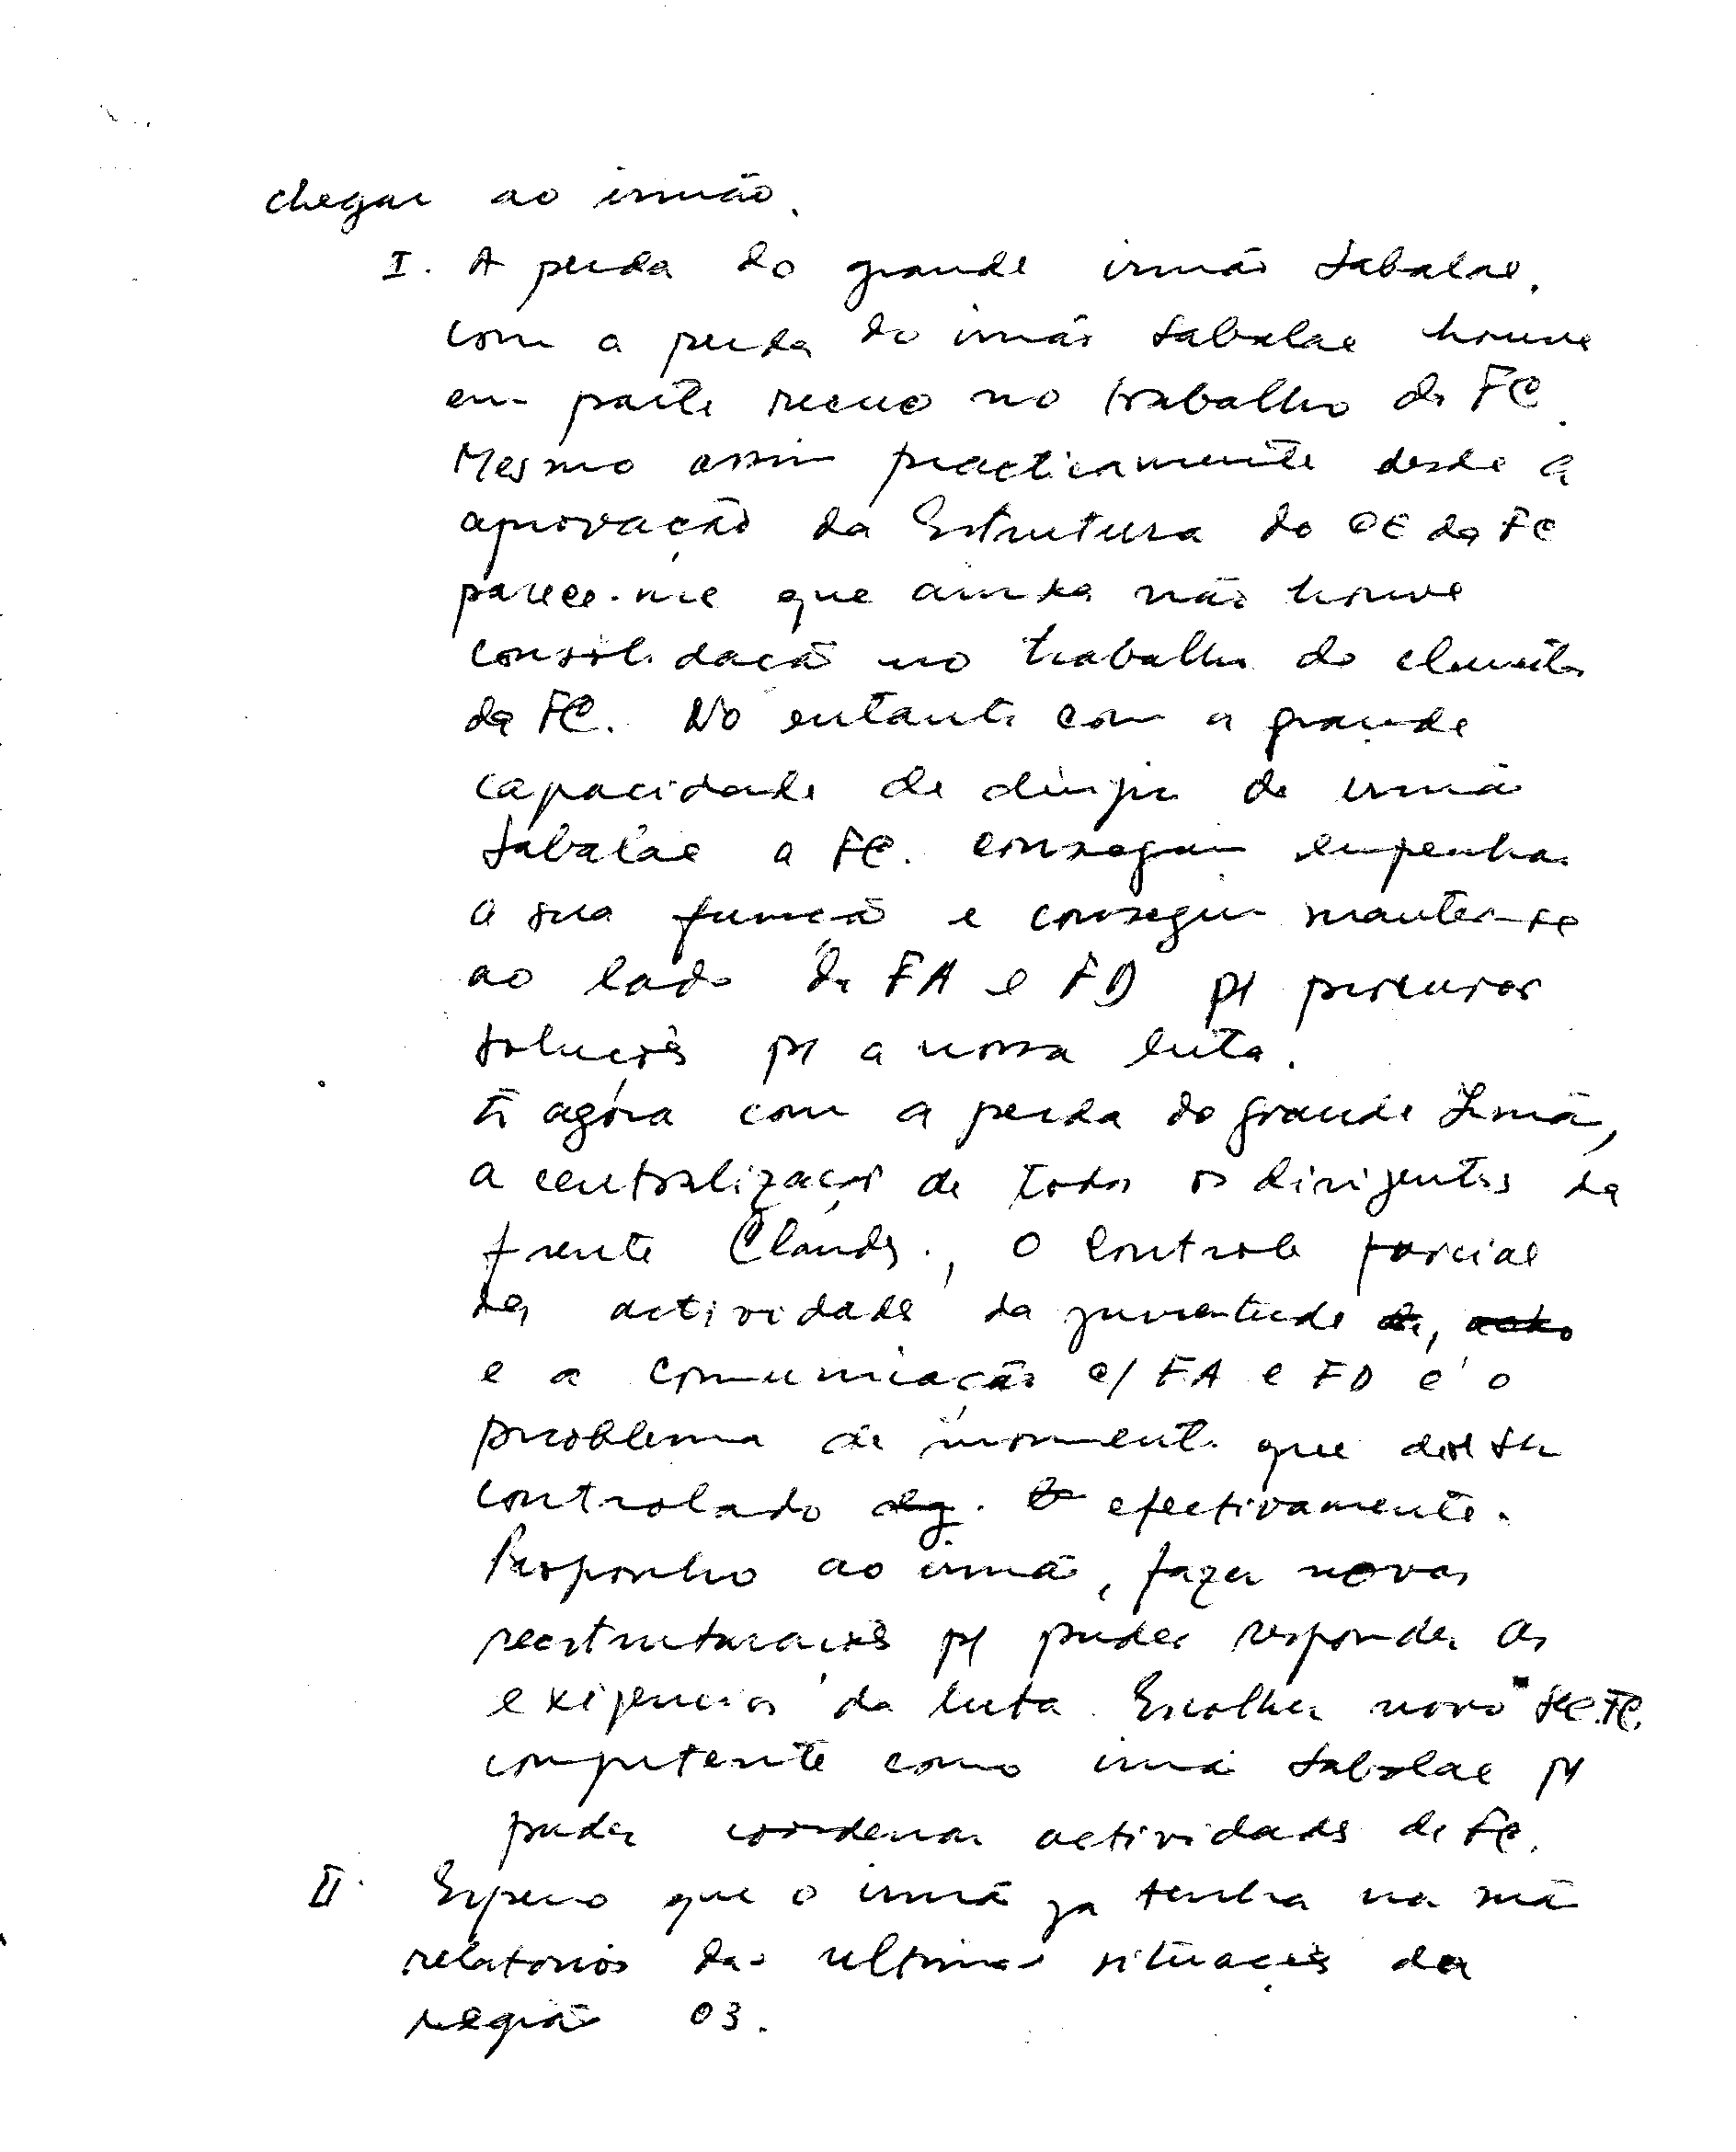 chegar ao irmão.
I. A perda do grande irmão Sabalae.
Com a perda do irmão Sabalae houve
em parte recuo no trabalho da FC.
Mesmo assim practicamente desde a
aprovação da Estrutura do CE da FC
parece-me que ainda não houve
consolidação no trabalho do elemento
da FC. No entanto com a grande
capacidade de dirigir do irmão
Sabalae a FC. conseguiu empenhar
a sua função e conseguiu manter-se
ao lado da FA e FD p/ procurar
soluções p/ a nossa luta.
agóra com a perda do grande Irmão,
a centralização de todos os dirigentes da
frente Clands., o controle parcial
das actividades da juventude
e a comunicação c/ FA e FD é o
problema de momento que deve ser
controlado efectivamente.
Proponho ao irmão, fazer novas
reestruturações p/ puder responder as
exigencias da luta. Escolher novo Sec.FC.
competente como irmão Sabalae p/
puder coordenar actividades da FC.
II. Espero que o irmão ja tenha na mão
relatorios das ultimas situações da
região 03.